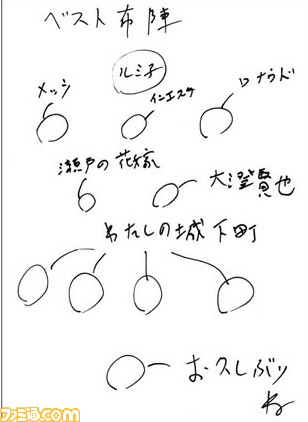 ベスト布陣
ルミ子
メッシ
インエスタ
ロナウド
瀬戸の花嫁
大澄賢也
わたしの城下町
お久しぶり
ね
ファミ通.com